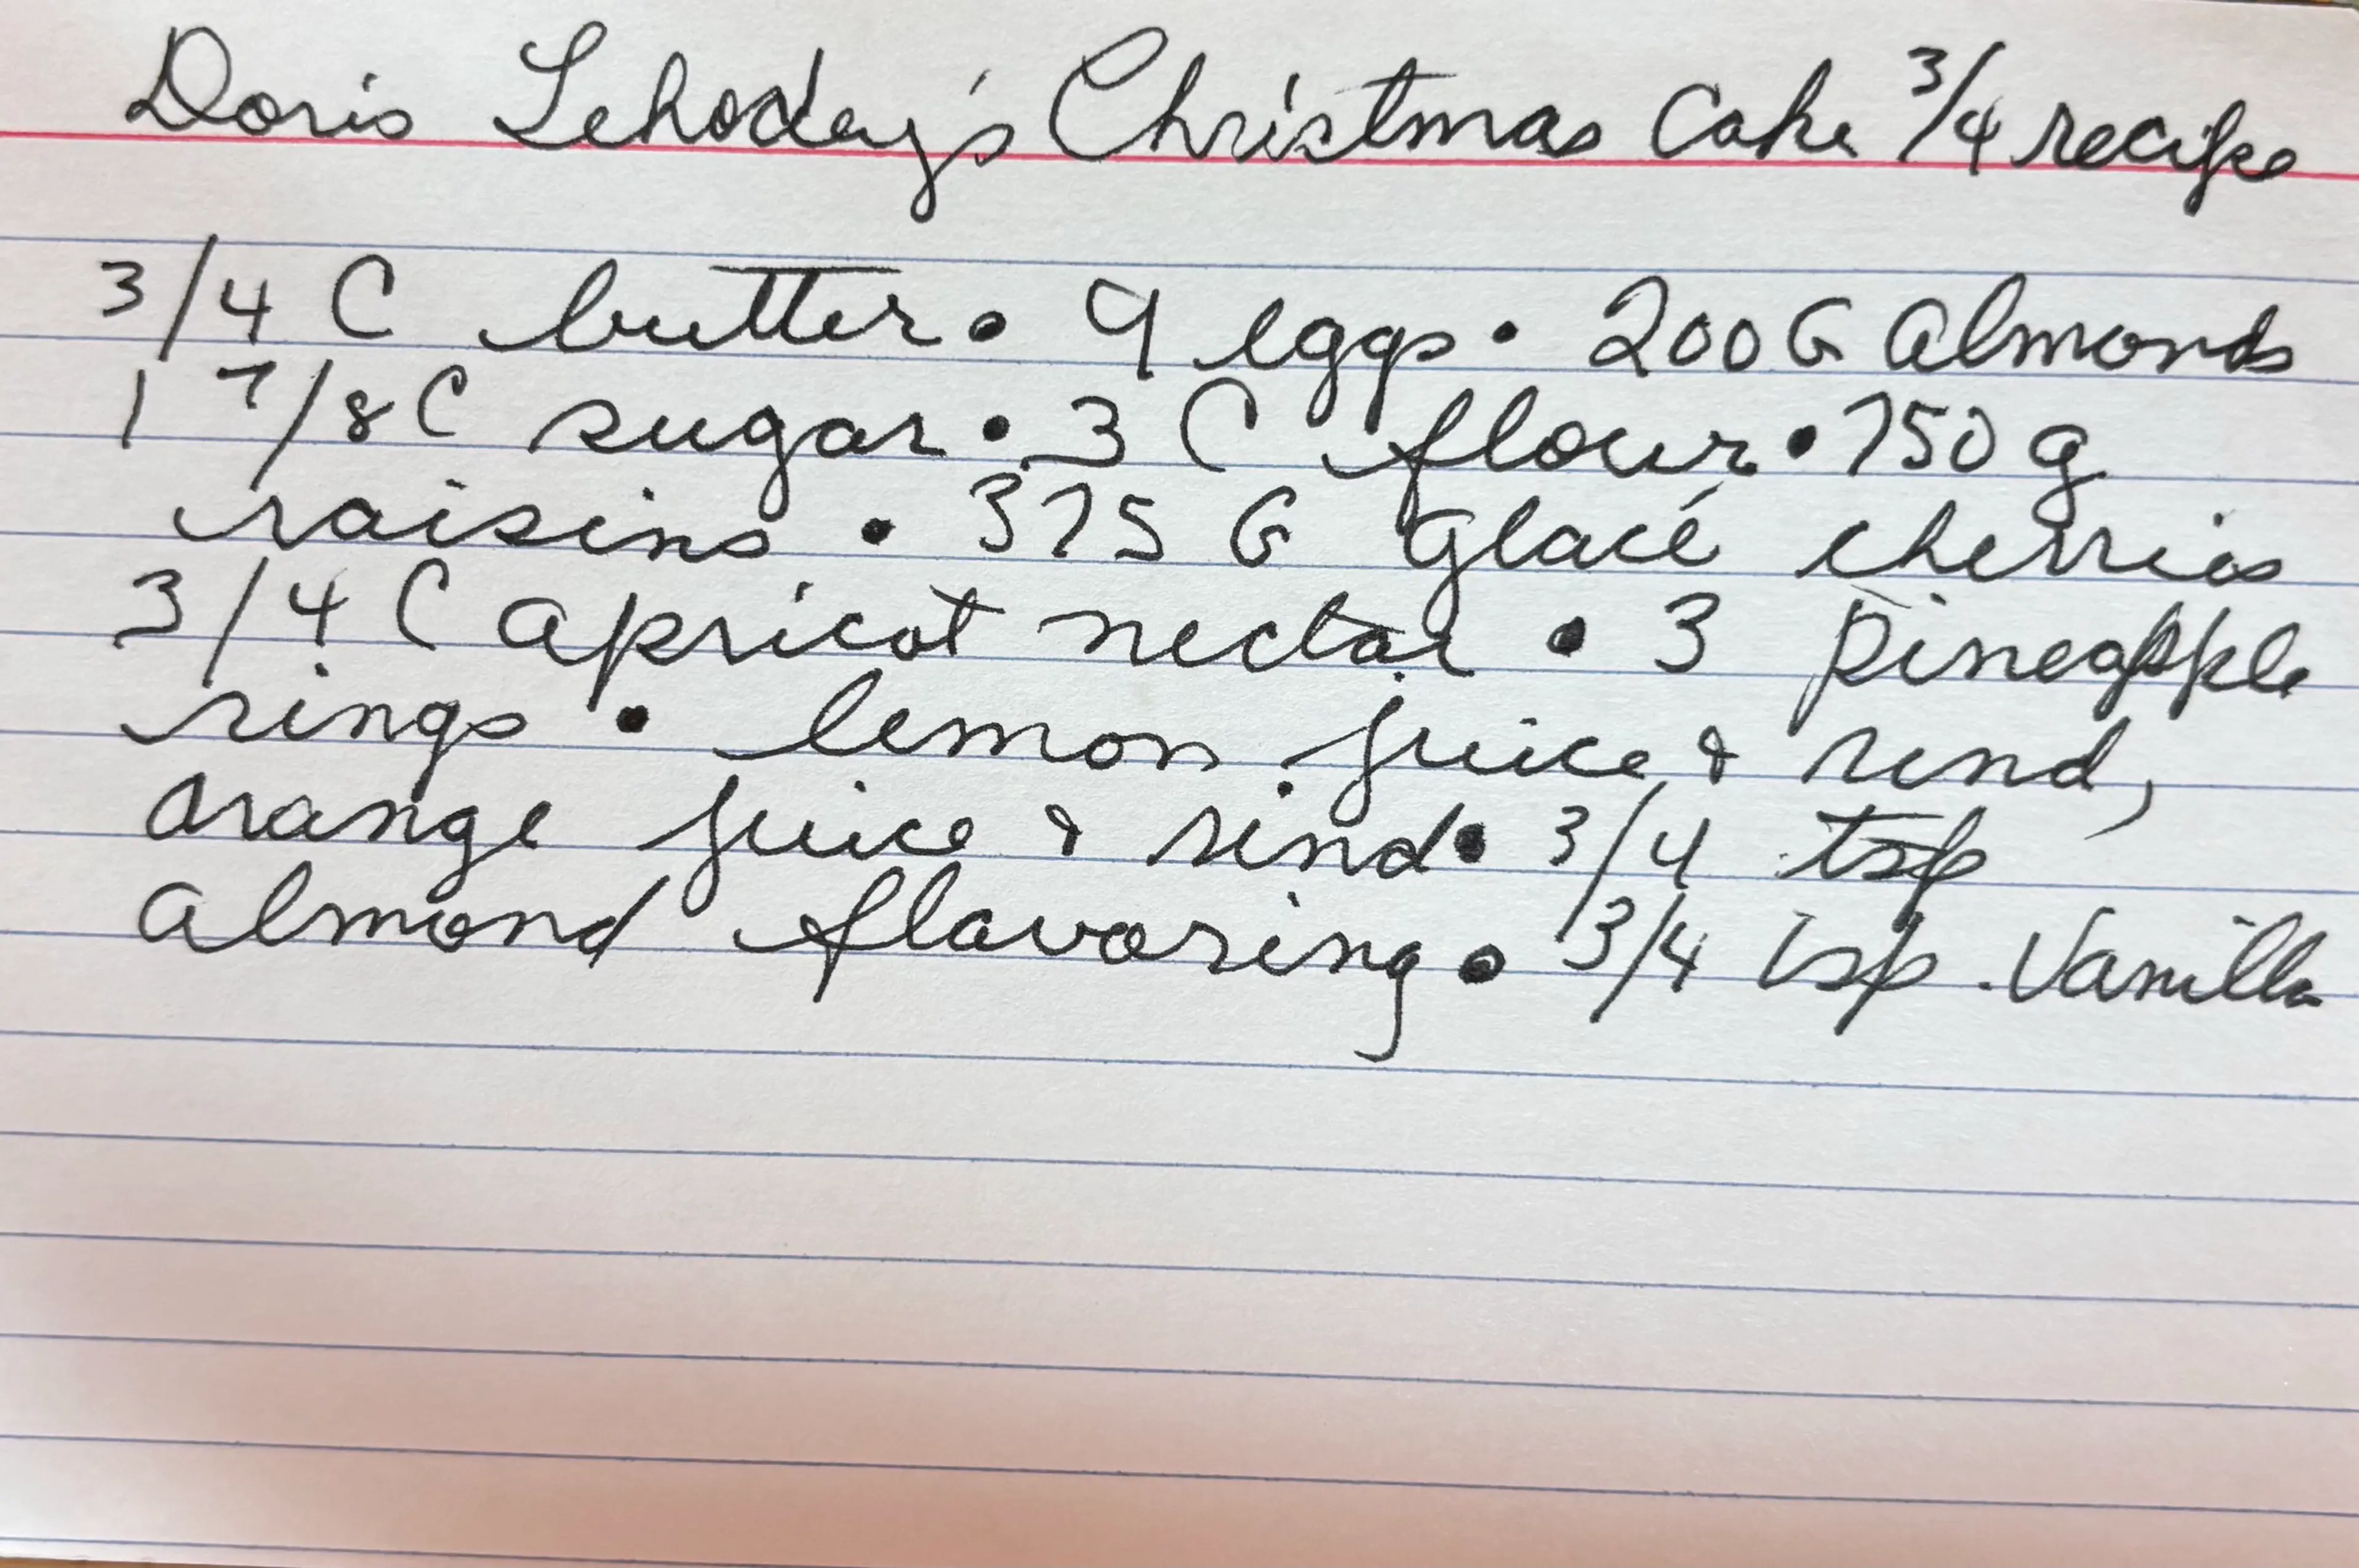 Doris Lehodey's Christmas Cake 3/4 recipe
3/4 C butter • 9 eggs • 200 G almonds
1 7/8 C sugar • 3 C flour • 750 g
raisins • 375 G Glacé cherries
3/4 C apricot nectar • 3 pineapple
rings • lemon juice & rind,
orange juice & rind • 3/4 tsp
almond flavoring • 3/4 tsp. Vanilla